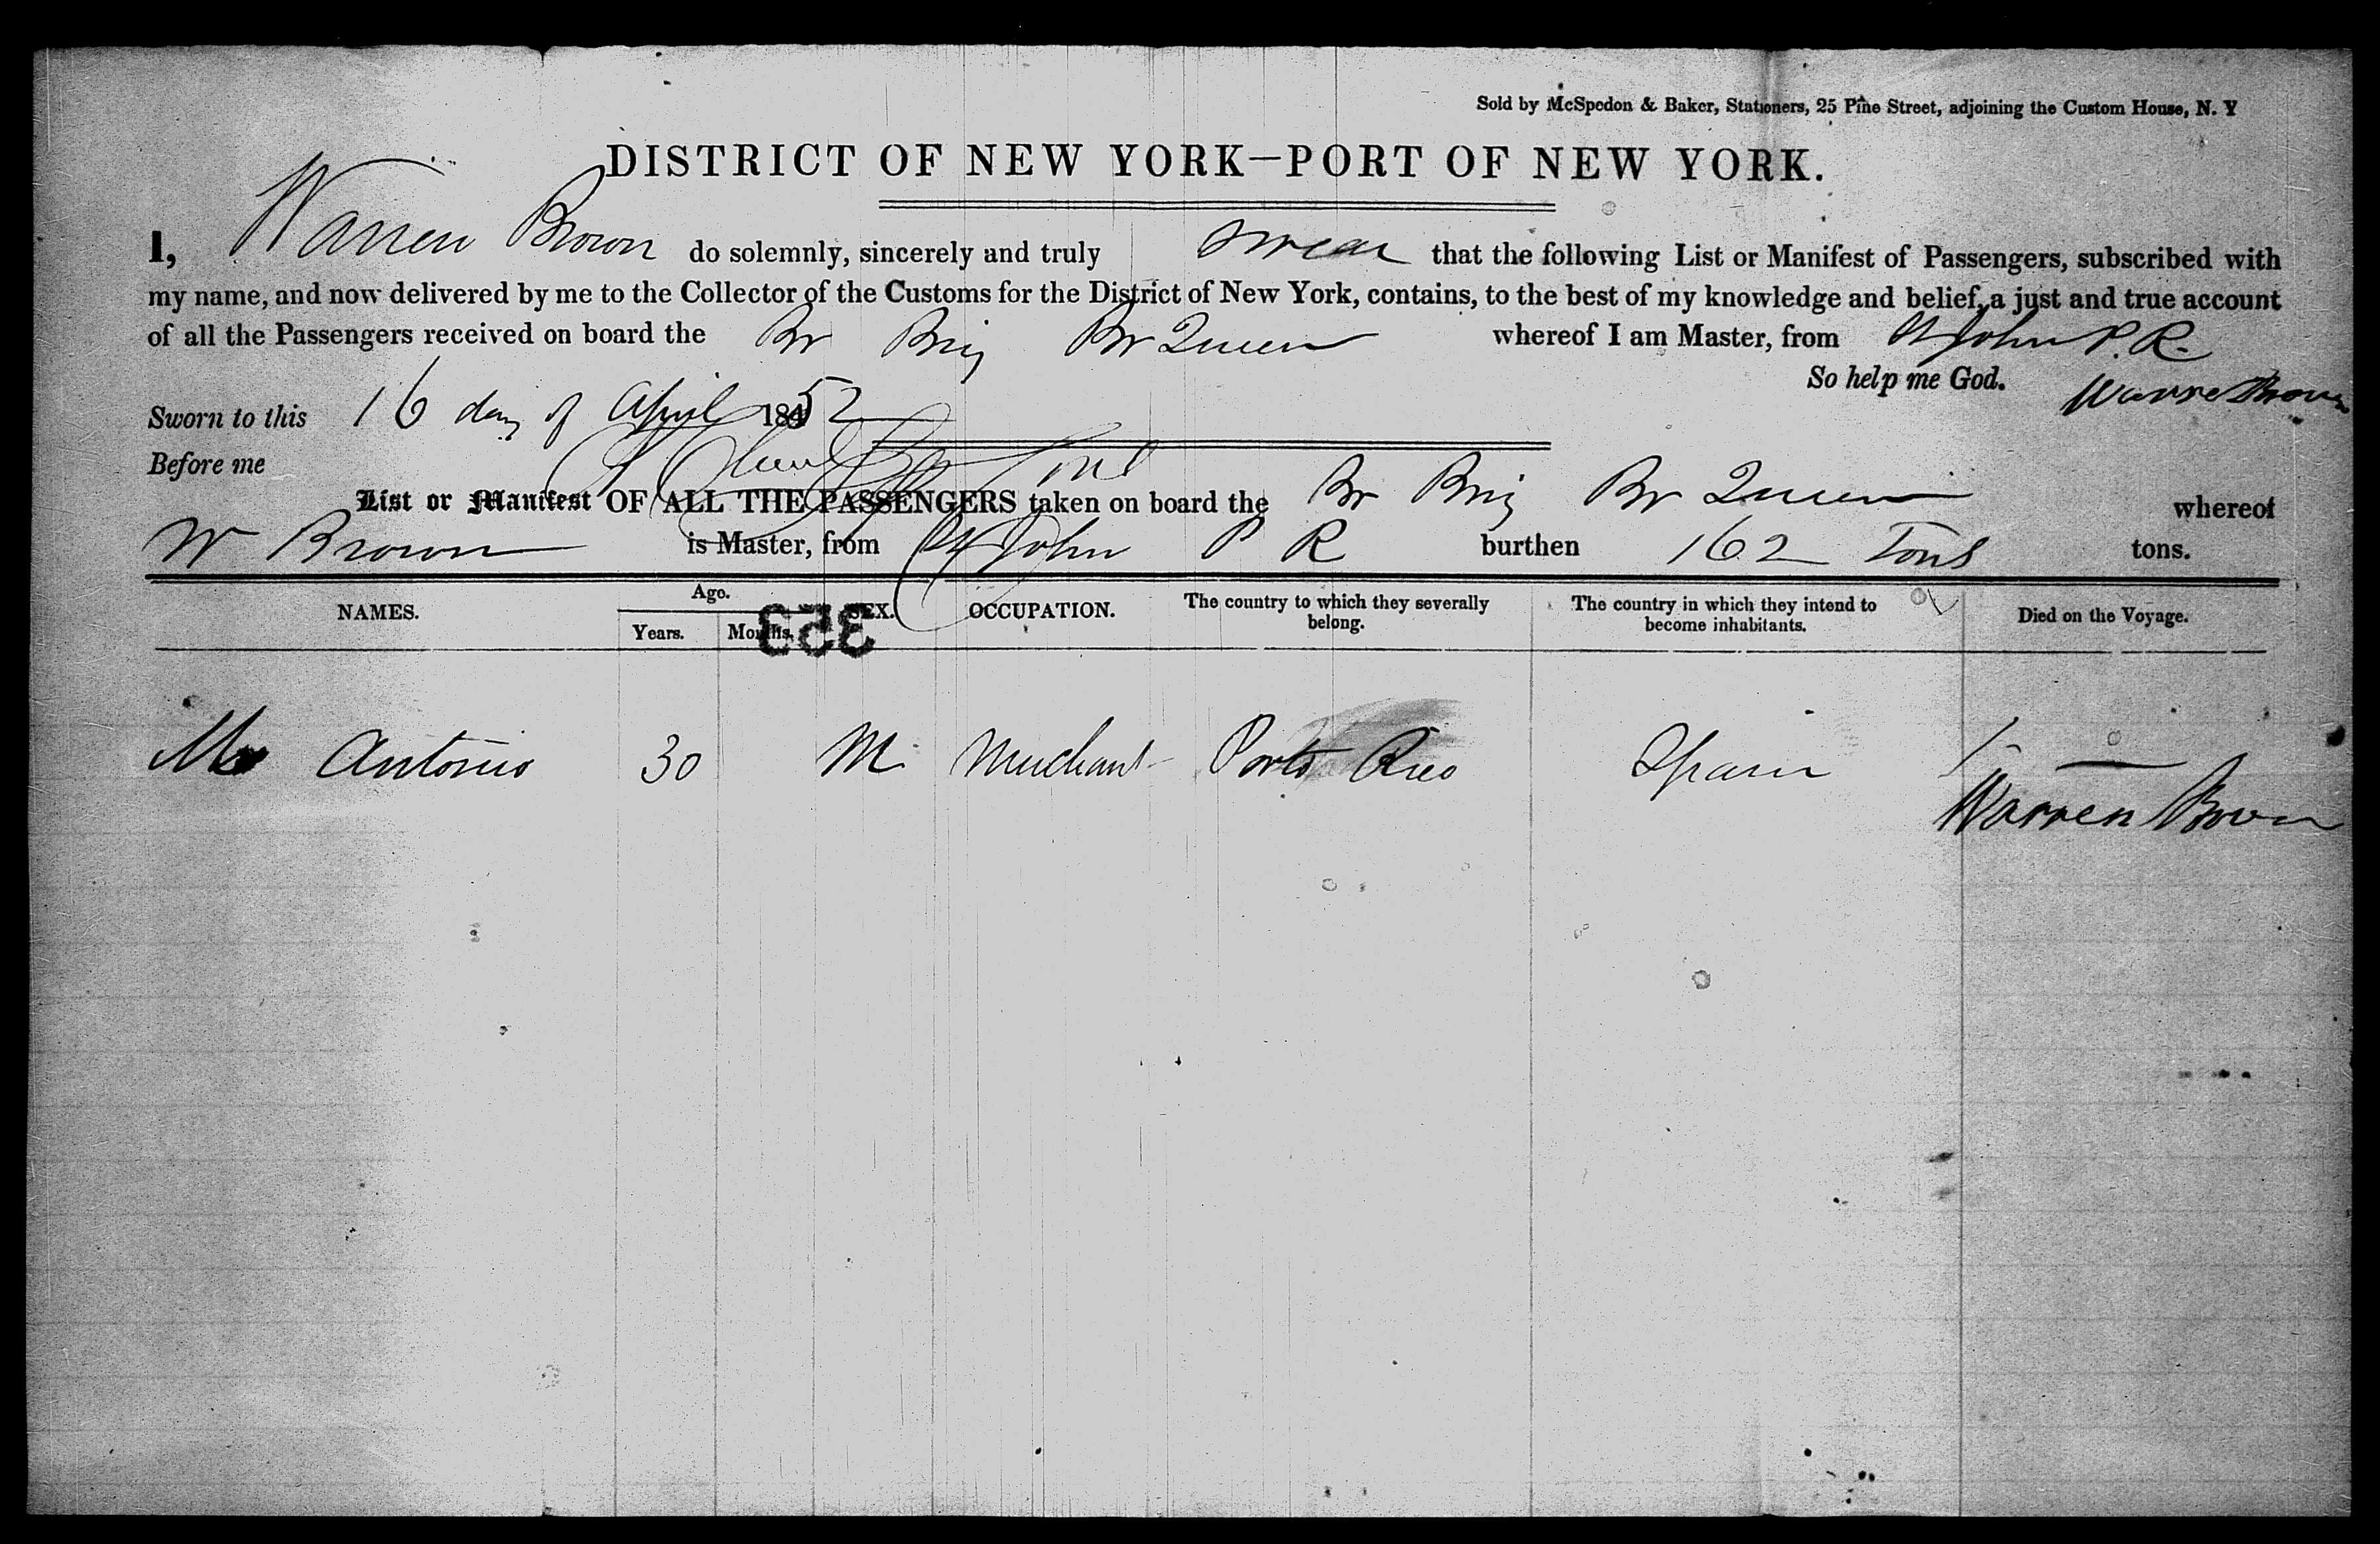 Sold by McSpedon & Baker, Stationers, 25 Pine Street, adjoining the Custom House, N. Y
DISTRICT OF NEW YORK—PORT OF NEW YORK.
I, Warren Brown do solemnly, sincerely and truly swear that the following List or Manifest of Passengers, subscribed with
my name, and now delivered by me to the Collector of the Customs for the District of New York, contains, to the best of my knowledge and belief, a just and true account
of all the Passengers received on board the Br Brig Br Queen whereof I am Master, from St John P. R.
So help me God. Warren Brown
Sworn to this 16 day of April 1852
Before me
List or Manifest OF ALL THE PASSENGERS taken on board the Br Brig Br Queen whereof
W Brown is Master, from St John P R burthen 162 Tons tons.
NAMES. Age. Years. Months. SEX. OCCUPATION. The country to which they severally belong. The country in which they intend to become inhabitants. Died on the Voyage.
353
Mr Antonio 30 M Merchant Porto Rico Spain
Warren Brown